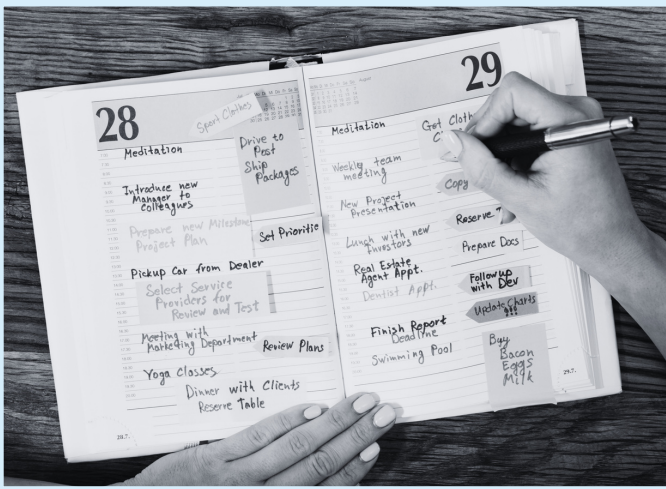 28
Sport Clothes
Meditation
Drive to
Post
Ship
Packages
Introduce new
Manager to
Colleagues
Prepare new Milestone
Project Plan
Set Prioritie
Pickup Car from Dealer
Select Service
Providers for
Review and Test
Meeting with
Marketing Department
Review Plans
Yoga classes
Dinner with Clients
Reserve Table
28.7.
29
August
Meditation
Get Cloth
Weekly team
meeting
Copy
New Project
Presentation
Reserve
Lunch with new
Investors
Prepare Docs
Real Estate
Agent Appt.
Followup
with Dev
Dentist Appt.
Update Charts
!!!
Finish Report
Deadline
Swimming Pool
Buy
Bacon
Eggs
Milk
29.7.